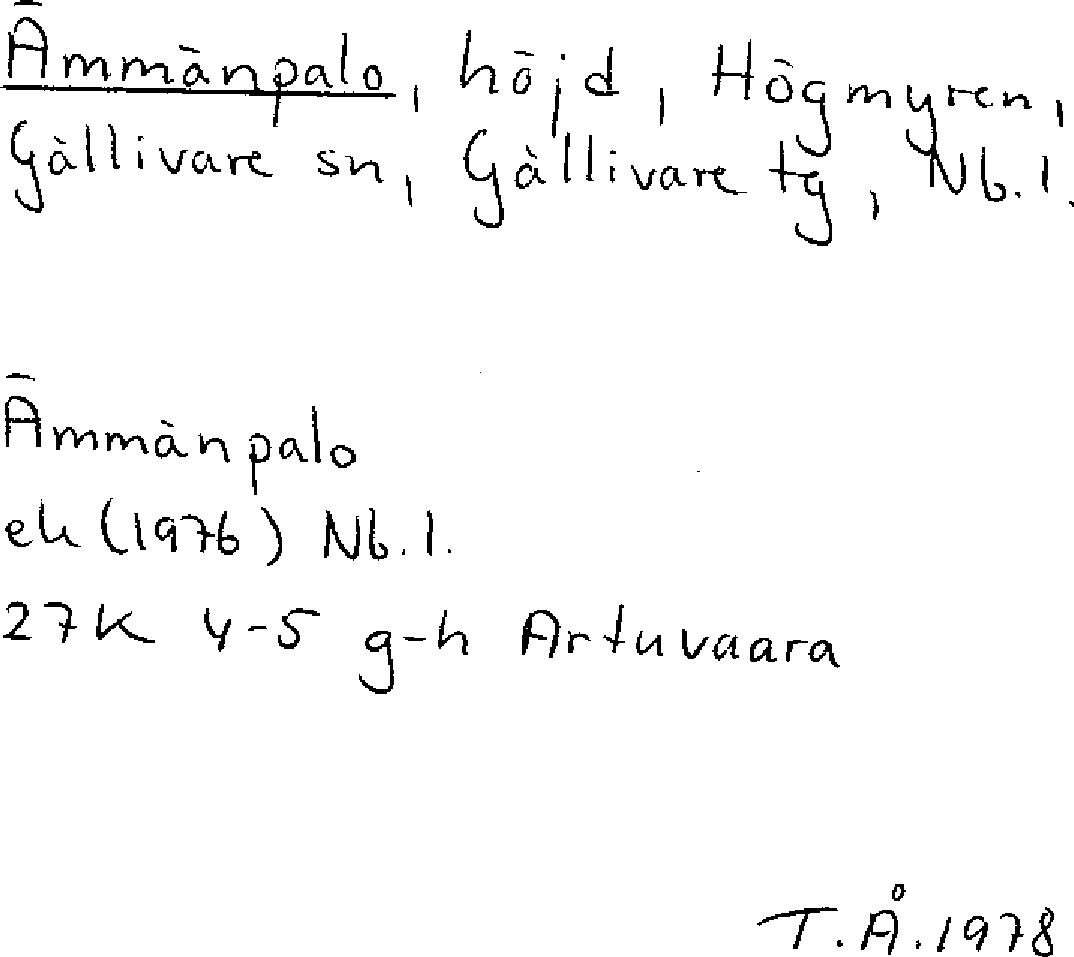 Ämmänpalo, höjd, Högmyren,
Gällivare sn, Gällivare tg, Nb.l.
Ämmänpalo
ek (1976) Nb.l.
27K 4-5 g-h Artuvaara
T.Å.1978